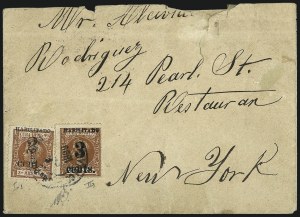 Mr. Alevin
Rodriguez
214 Pearl. St.
Restauran
New York
HABILITADO
2
CENTS.
HABILITADO
3
CENTS.